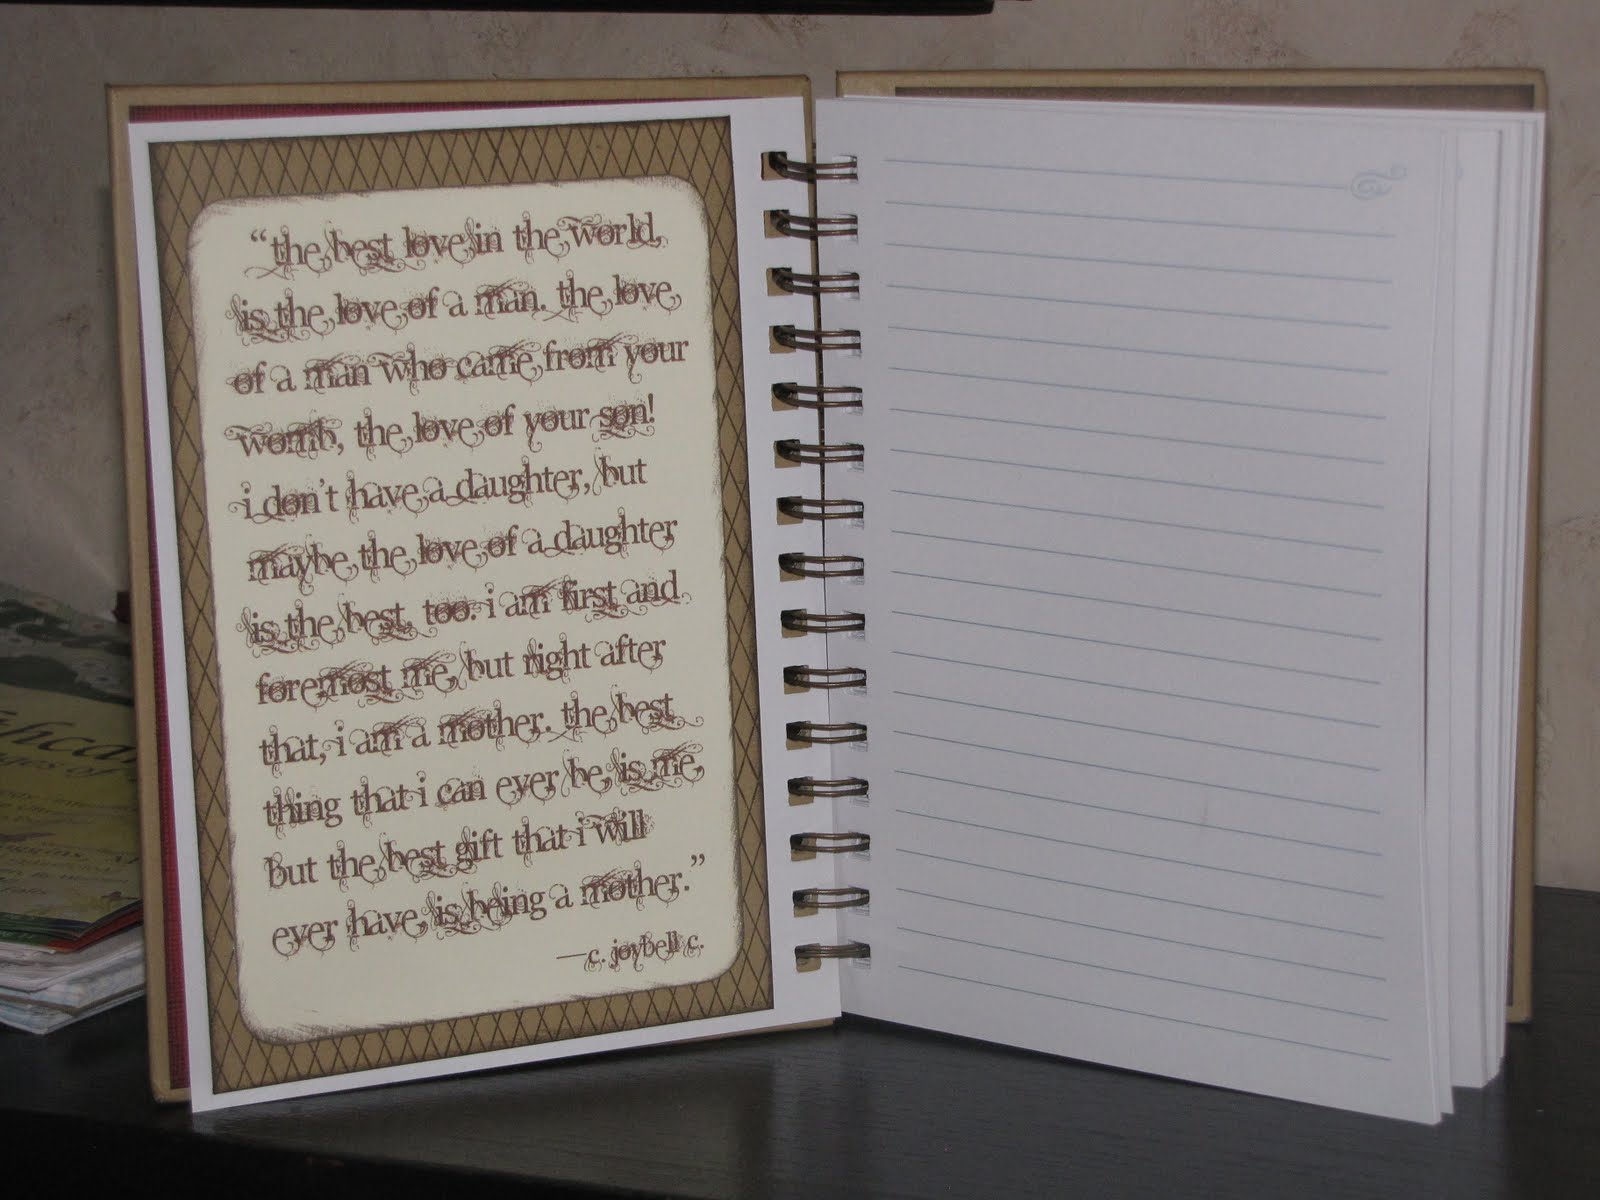 “the best love in the world,
is the love of a man. the love
of a man who came from your
womb, the love of your son!
i don't have a daughter, but
maybe the love of a daughter
is the best, too. i am first and
foremost me, but right after
that, i am a mother. the best
thing that i can ever be, is me,
but the best gift that i will
ever have, is being a mother.”
—c. joybell c.